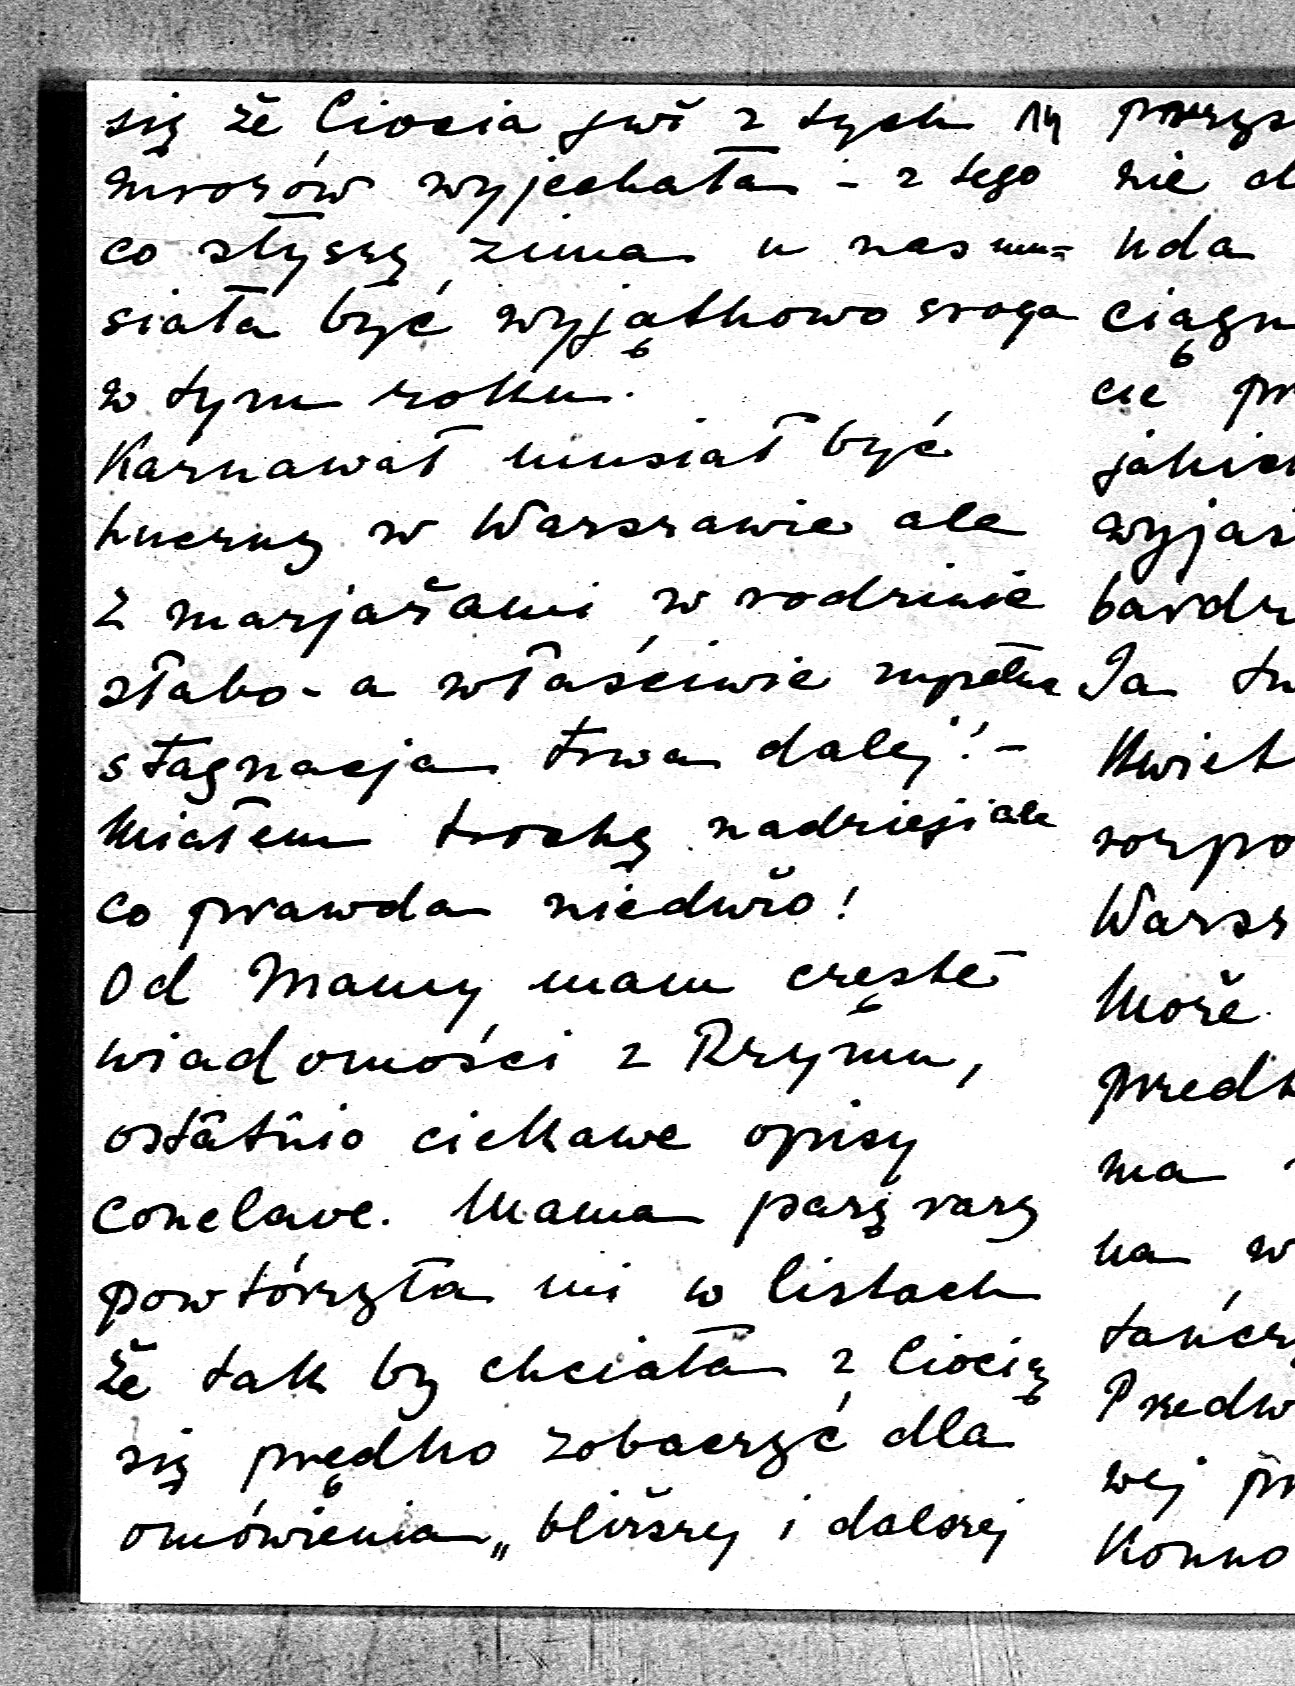 się że Ciocia już z tych 14
mrozów wyjechała - z tego
co słyszę zima u nas mu=
siała być wyjątkowo sroga
w tym roku.
Karnawał musiał być
huczny w Warszawie ale
z marjażami w rodzinie
słabo - a właściwie zupełna
stagnacja trwa dalej! -
Miałem trochę nadzieji ale
co prawda niedużo!
Od Mamy mam częste
wiadomości z Rzymu,
ostatnio ciekawe opisy
Conclave. Mama parę razy
powtórzyła mi w listach
że tak by chciała z Ciocią
się prędko zobaczyć dla
omówienia „bliższej i dalszej
nie
uda
ciągn
cie pr
jakich
wyjaś
bardz
Ja tu
Kwiet
rozpo
Warsz
Może
przed
ma
na w
tańcz
Przedw
wej pr
Konno